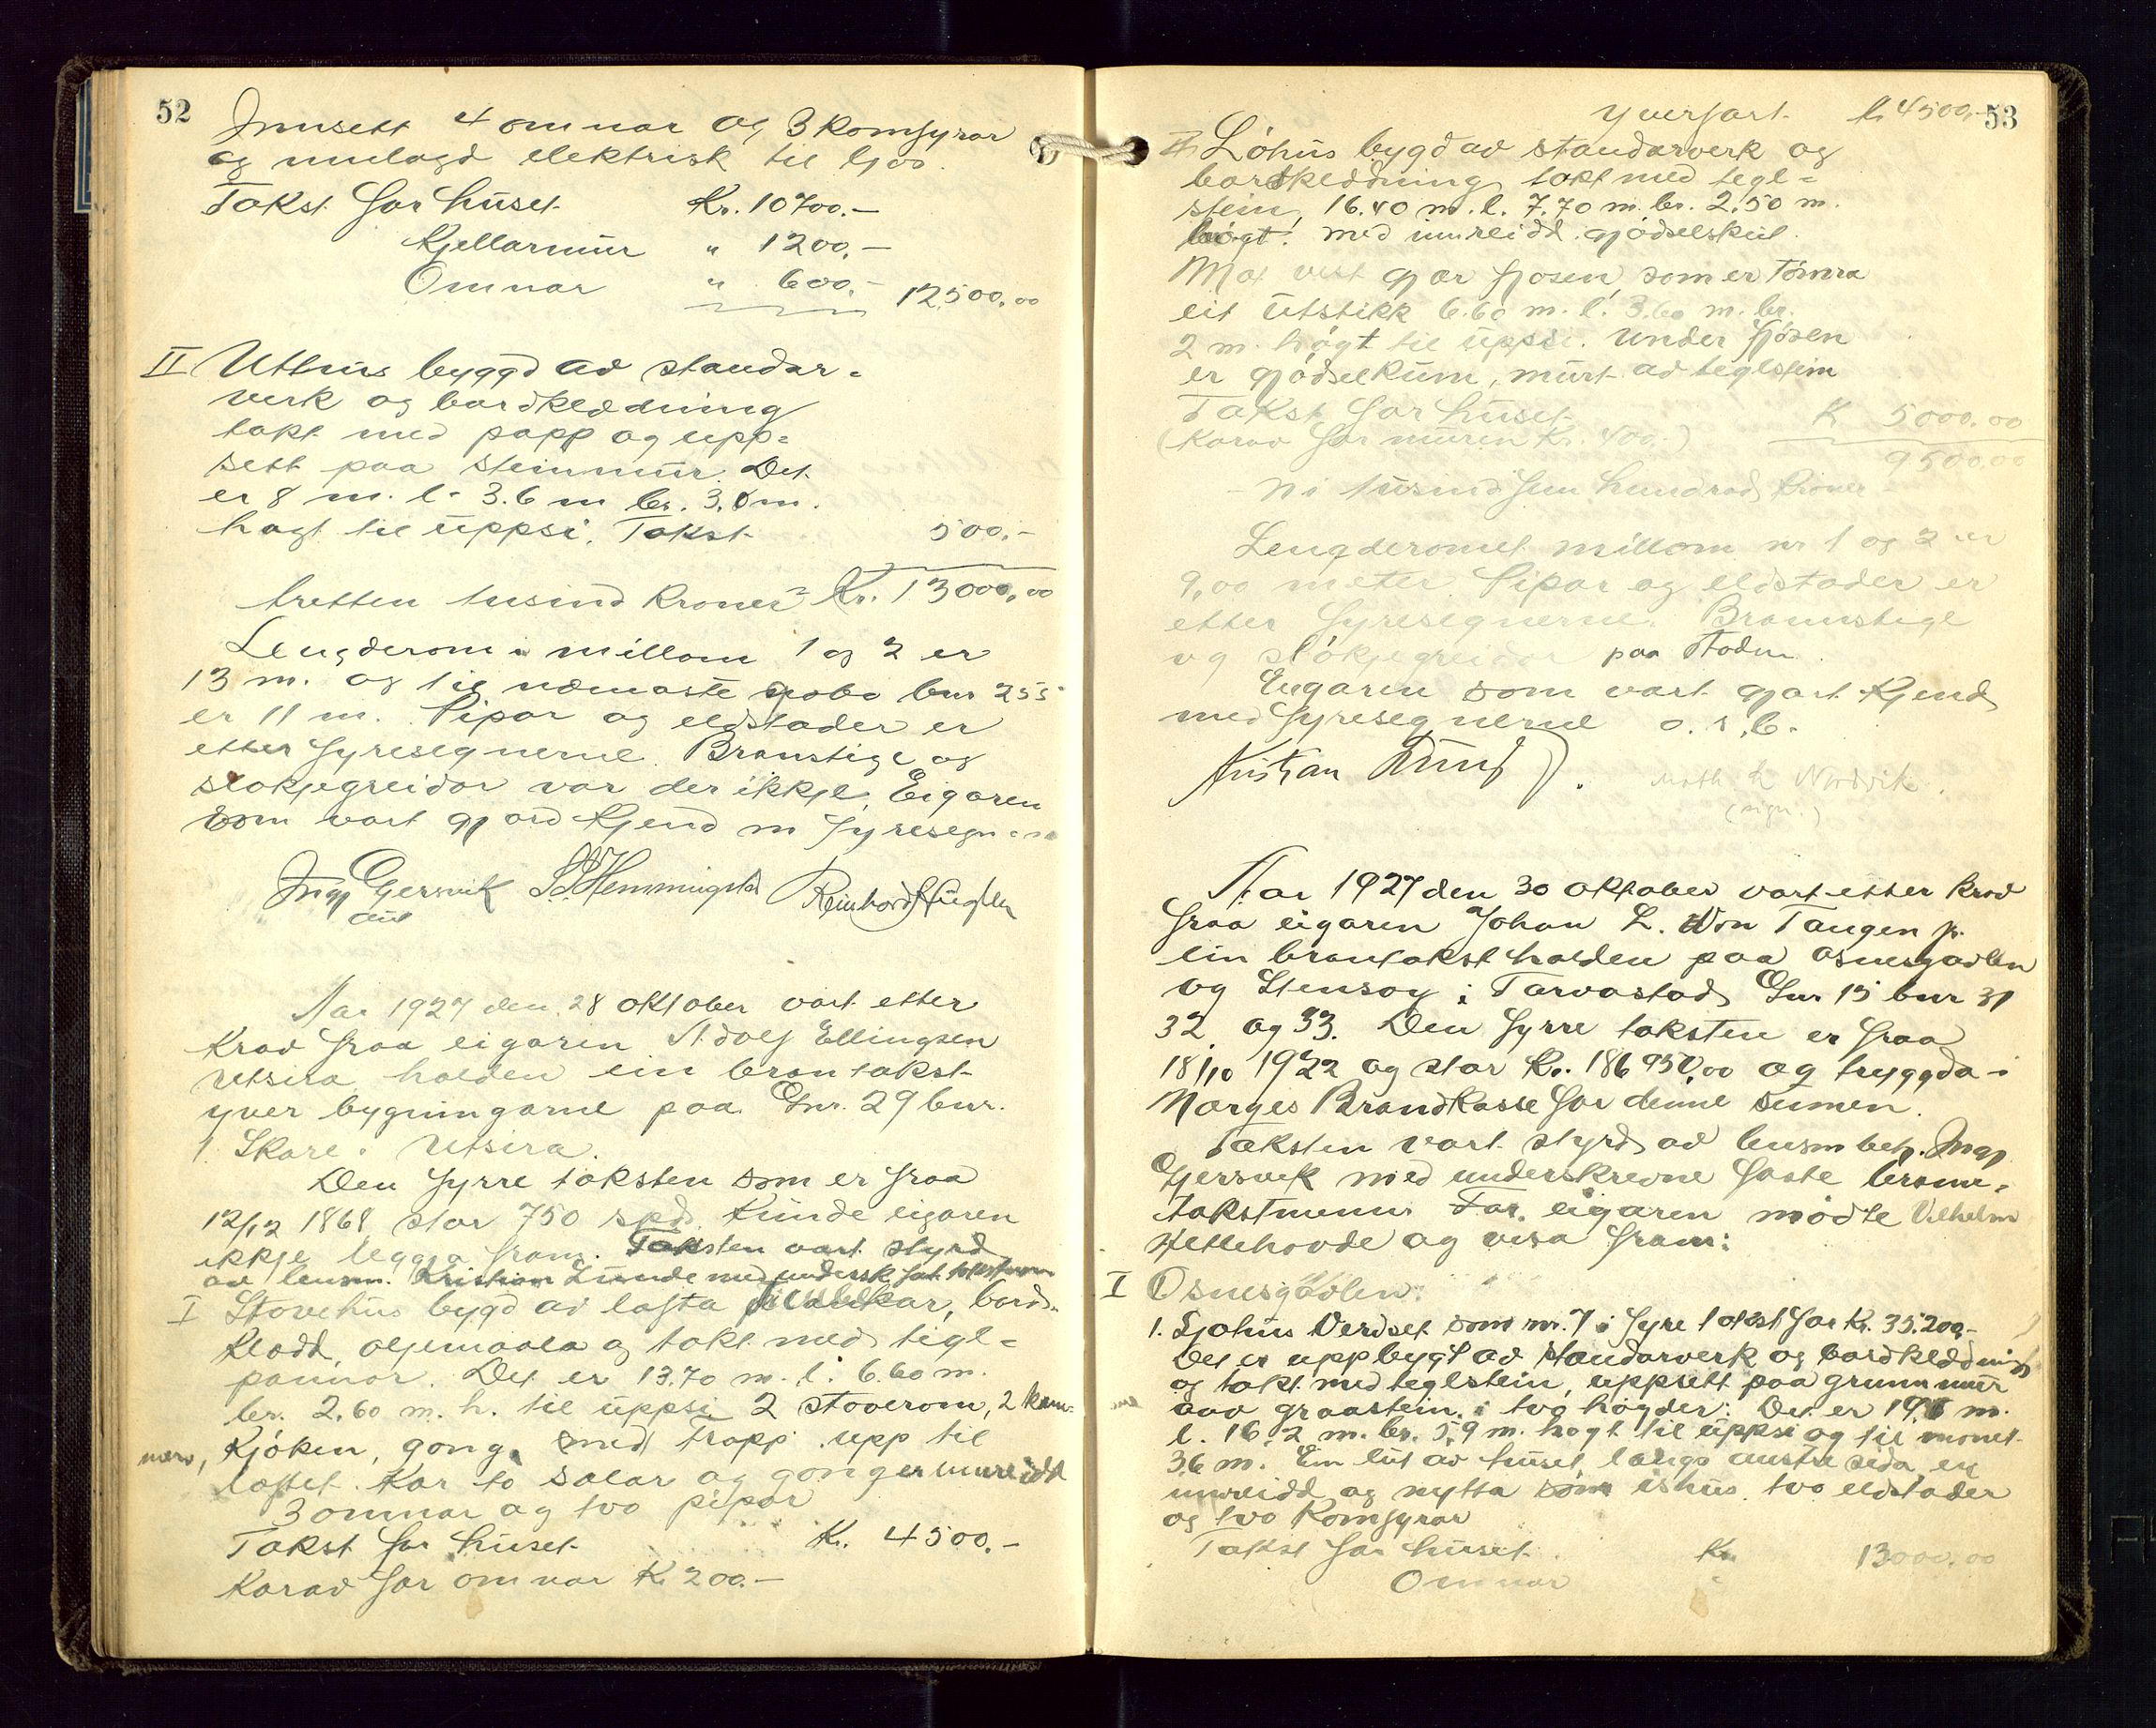 52
Innsett 4 omnar og 3 komfyrar
og innlagd elektrisk til ljos.
Takst for huset Kr. 10700.-
Kjellarmur " 1200.-
Omnar " 600.- 12500.00
II Uthus byggd av standar-
verk og bordkledning
takt med papp og upp-
sett paa steinmur. Det
er 8 m. l. 3.6 m br. 3.0 m.
høgt til uppsi. Takst 500.-
tretten tusind kroner Kr. 13000.00
Lengderom millom 1 og 2 er
13 m. og til næmaste nabo bnr 255
er 11 m. Pipar og eldstader er
etter fyresegnerne. Branstige og
sløkjegreidor var der ikkje. Eigaren
som vart gjord kjend m fyresegn
Ing Gjersvik S. S. Hemmingstad Reinhord Hugslen
Aar 1927 den 28 oktober vart etter
krav fraa eigaren Adolf Ellingsen
Utsira halden ein brantakst
yver bygningarne paa Gnr. 29 bnr.
1 Skare i Utsira.
Den fyrre taksten som er fraa
12/12 1868 stor 750 spd. kunde eigaren
ikkje leggja fram. Taksten vart styrd
av lensm. Kristian Lunde med undersk. fat. takstmenn
I Stovehus bygd av lafta plankar, bord-
kledd, oljemaala og takt med tegl-
pannor. Det er 13.70 m. l. 6.60 m.
br. 2.60 m. h. til uppsi 2 stoverom, 2 kam-
mers, kjøken, gong, med trapp upp til
loftet. Kor to salar og gong er innreidd
3 omnar og tvo pipor
Takst for huset Kr. 4500.-
Korav for omnar Kr 200.-
53
Yverført kr 4500,-
II Løhus bygd av standarverk og
bordkledding takt med tegl-
stein, 16.40 m. l. 7.70 m. br. 2.50 m.
høgt. med innreidd gjødselskut.
Mot vest gjør fjosen, som er tømra
eit utstikk 6.60 m. l. 3.60 m. br.
2 m. høgt til uppsi. Under fjøsen
er gjødselkum, murt av teglstein
Takst for huset K 5000.00
(Korav for muren Kr. 400.-) 9500.00
- ni tusind fem hundrad kroner -
Lengderomet millom nr 1 og 2 er
9,00 meter. Pipar og eldstader er
etter fyresegnerne. Brannstige
og sløkjegreidor paa staden.
Eigaren som vart gjort kjend
med fyresegnerne o. s. b.
Kristian Lunde Math L Nordvik.
(sign.)
Aar 1927 den 30 oktober vart etter krav
fraa eigaren Johan L. von Tangen jr.
ein brantakst halden paa Osnesgavlen
og Stensøy i Torvastad Gnr 15 bnr 31
32 og 33. Den fyrre taksten er fraa
18/10 1922 og stor Kr. 186950,00 og tryggda i
Norges Brandkasse for denne sumen.
Taksten vart styrd av lensm betj. Ing
Gjersvik med underskrevne faste brann-
takstmenn. For eigaren mødte Vilhelm
Hettehovde og visa fram:
I Osnesgavlen:
1. Sjøhus Verdset som nr. 7 i fyre takst for Kr. 35.200,-
Det er uppbygt av standarverk og bordkledning
og takt med teglstein, uppsett paa grunnmur
aav graastein, i tvo høgder. Det er 19, m.
l. 16,2 m. br. 5,9 m. høgt til uppsi og til mønet
3,6 m. Ein lut av huset, langs austre sida, er
innreidd og nytta som ishus. tvo eldstader
og tvo komfyrar
Takst for huset Kr. 13000.00
Omnar "